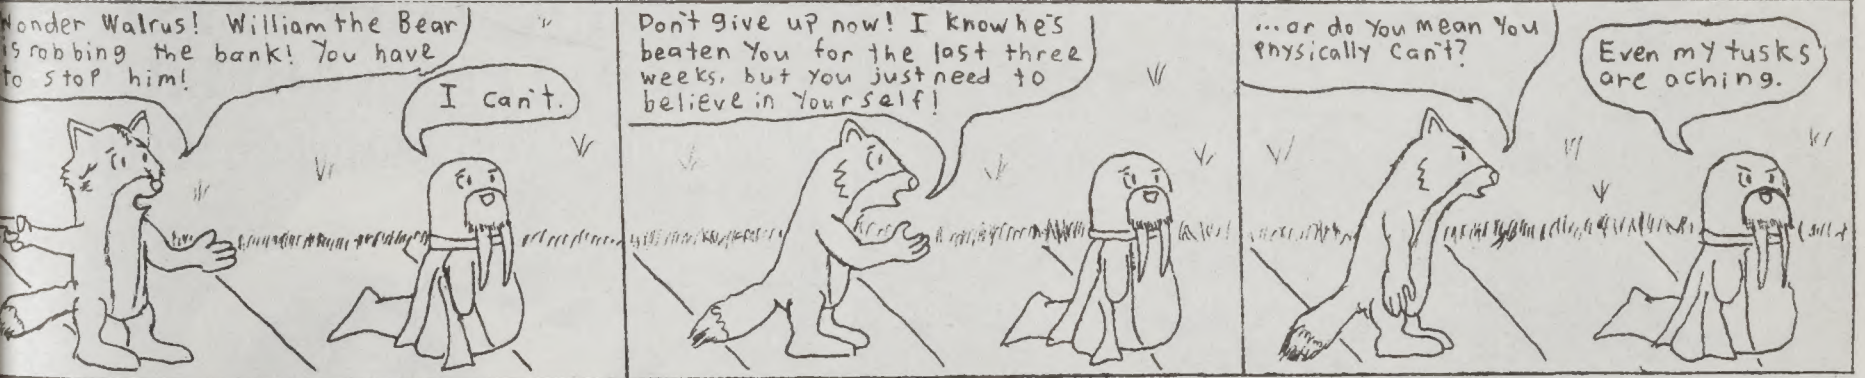 Wonder Walrus! William the Bear
is robbing the bank! You have
to stop him!
I can't.
Don't give up now! I know he's
beaten you for the last three
weeks, but you just need to
believe in yourself!
...or do you mean you
physically can't?
Even my tusks
are aching.